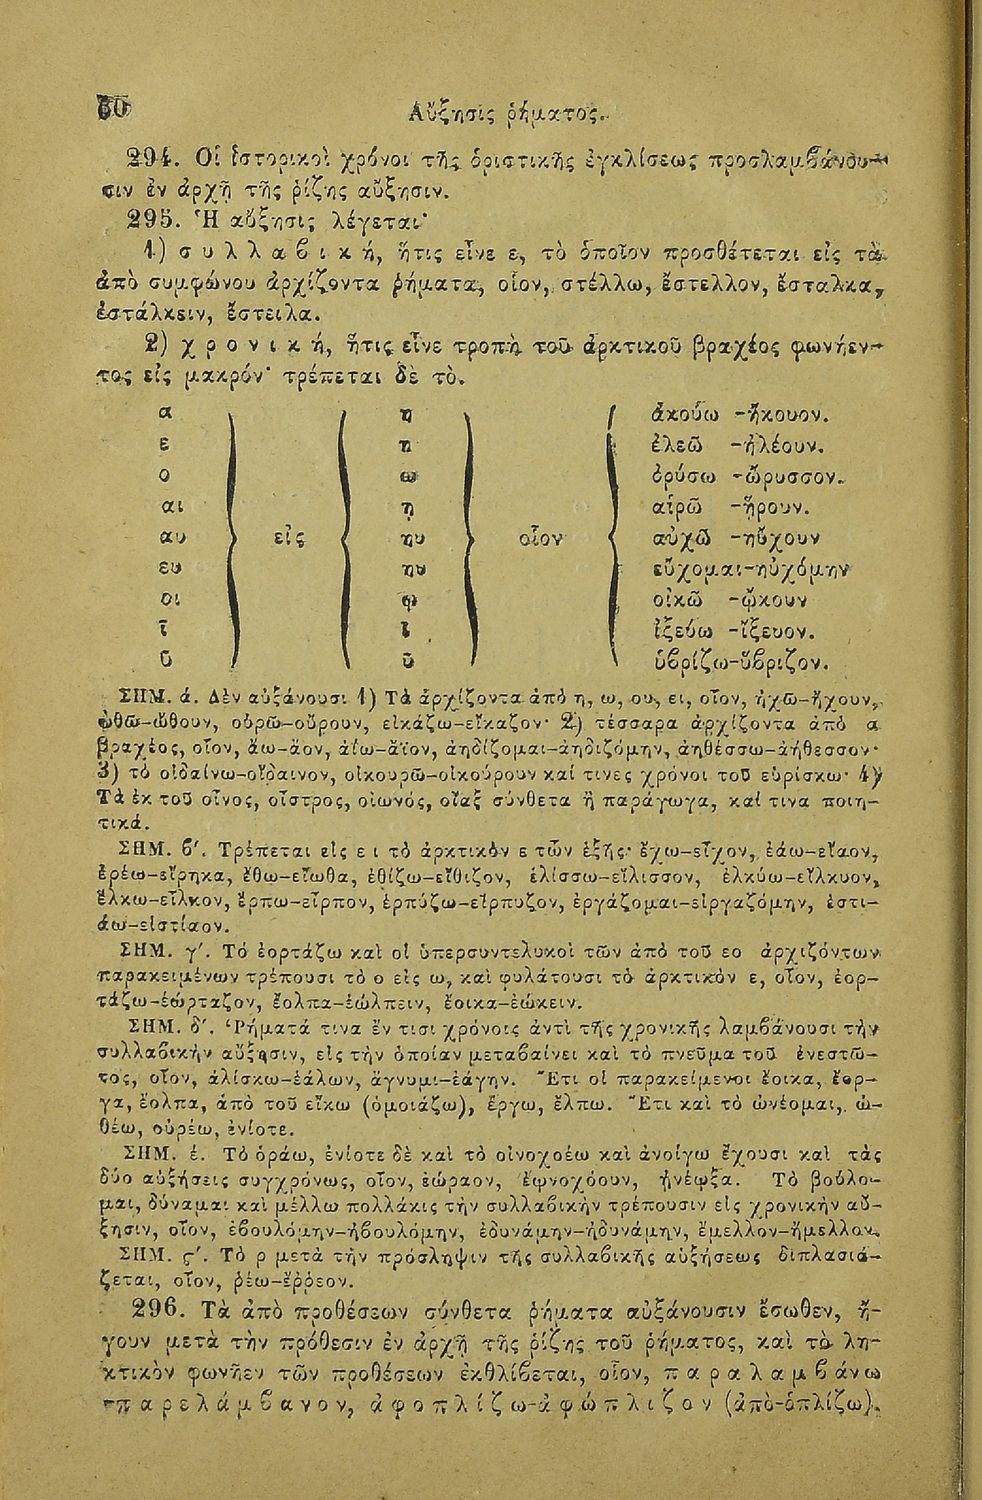 60 Αὔξησις ῥήματος.
294. Οἱ ἱστορικοὶ χρόνοι τῆς ὁριστικῆς ἐγκλίσεως προσλαμβάνου-
σιν ἐν ἀρχῇ τῆς ῥίζης αὔξησιν.
295. Ἡ αὔξησις λέγεται·
1) συλλαβική, ἥτις εἶνε ε, τὸ ὁποῖον προσθέτεται εἰς τὰ
ἀπὸ συμφώνου ἀρχίζοντα ῥήματα, οἷον, στέλλω, ἔστελλον, ἔσταλκα,
ἐστάλκειν, ἔστειλα.
2) χρονική, ἥτις εἶνε τροπὴ τοῦ ἀρκτικοῦ βραχέος φωνήεν-
τος εἰς μακρόν· τρέπεται δὲ τὸ.
α η ἀκούω -ἤκουον.
ε η ἐλεῶ -ἠλέουν.
ο ω ὀρύσω -ὤρυσσον.
αι ῃ αἰρῶ -ᾕρουν.
αυ εἰς ηυ οἷον αὐχῶ -ηὔχουν
ευ ηυ εὔχομαι-ηὐχόμην
οι ῳ οἰκῶ -ᾤκουν
ῐ ῑ ἰξεύω -ἴξευον.
ῠ ῡ ὑβρίζω-ὕβριζον.
ΣΗΜ. ά. Δὲν αὐξάνουσι 1) Τὰ ἀρχίζοντα ἀπὸ η, ω, ου, ει, οἷον, ἠχῶ-ἤχουν,
ὠθῶ-ὤθουν, οὐρῶ-οὔρουν, εἰκάζω-εἴκαζον· 2) τέσσαρα ἀρχίζοντα ἀπὸ α
βραχέος, οἷον, ἄω-ἄον, ἀΐω-ἄϊον, ἀηδίζομαι-ἀηδιζόμην, ἀηθέσσω-ἀήθεσσον·
3) τὸ οἰδαίνω-οἴδαινον, οἰκουρῶ-οἰκούρουν καί τινες χρόνοι τοῦ εὑρίσκω· 4)
Τὰ ἐκ τοῦ οἶνος, οἶστρος, οἰωνός, οἴαξ σύνθετα ἢ παράγωγα, καί τινα ποιη-
τικά.
ΣΗΜ. β΄. Τρέπεται εἰς ε ι τὸ ἀρκτικὸν ε τῶν ἑξῆς· ἔχω-εἶχον, ἐάω-εἴαον,
ἐρέω-εἴρηκα, ἔθω-εἴωθα, ἐθίζω-εἴθιζον, ἑλίσσω-εἵλισσον, ἑλκύω-εἵλκυον,
ἕλκω-εἷλκον, ἕρπω-εἷρπον, ἑρπύζω-εἵρπυζον, ἐργάζομαι-εἰργαζόμην, ἑστι-
άω-εἱστίαον.
ΣΗΜ. γ΄. Τὸ ἑορτάζω καὶ οἱ ὑπερσυντελικοὶ τῶν ἀπὸ τοῦ εο ἀρχιζόντων
παρακειμένων τρέπουσι τὸ ο εἰς ω, καὶ φυλάτουσι τὸ ἀρκτικὸν ε, οἷον, ἑορ-
τάζω-ἑώρταζον, ἔολπα-ἐώλπειν, ἔοικα-ἐῴκειν.
ΣΗΜ. δ΄. Ῥήματά τινα ἔν τισι χρόνοις ἀντὶ τῆς χρονικῆς λαμβάνουσι τὴν
συλλαβικὴν αὔξησιν, εἰς τὴν ὁποίαν μεταβαίνει καὶ τὸ πνεῦμα τοῦ ἐνεστῶ-
τος, οἷον, ἁλίσκω-ἑάλων, ἄγνυμι-ἐάγην. Ἔτι οἱ παρακείμενοι ἔοικα, ἔορ-
γα, ἔολπα, ἀπὸ τοῦ εἴκω (ὁμοιάζω), ἔργω, ἔλπω. Ἔτι καὶ τὸ ὠνέομαι, ὠ-
θέω, οὐρέω, ἐνίοτε.
ΣΗΜ. έ. Τὸ ὁράω, ἐνίοτε δὲ καὶ τὸ οἰνοχοέω καὶ ἀνοίγω ἔχουσι καὶ τὰς
δύο αὐξήσεις συγχρόνως, οἷον, ἑώραον, ἐῳνοχόουν, ἠνέῳξα. Τὸ βούλο-
μαι, δύναμαι καὶ μέλλω πολλάκις τὴν συλλαβικὴν τρέπουσιν εἰς χρονικὴν αὔ-
ξησιν, οἷον, ἐβουλόμην-ἠβουλόμην, ἐδυνάμην-ἠδυνάμην, ἔμελλον-ἤμελλον.
ΣΗΜ. ς΄. Τὸ ρ μετὰ τὴν πρόσληψιν τῆς συλλαβικῆς αὐξήσεως διπλασιά-
ζεται, οἷον, ῥέω-ἔῤῥεον.
296. Τὰ ἀπὸ προθέσεων σύνθετα ῥήματα αὐξάνουσιν ἔσωθεν, ἤ-
γουν μετὰ τὴν πρόθεσιν ἐν ἀρχῇ τῆς ῥίζης τοῦ ῥήματος, καὶ τὸ λη-
κτικὸν φωνῆεν τῶν προθέσεων ἐκθλίβεται, οἷον, παραλαμβάνω
-παρελάμβανον, ἀφοπλίζω-ἀφώπλιζον (ἀπὸ-ὁπλίζω),